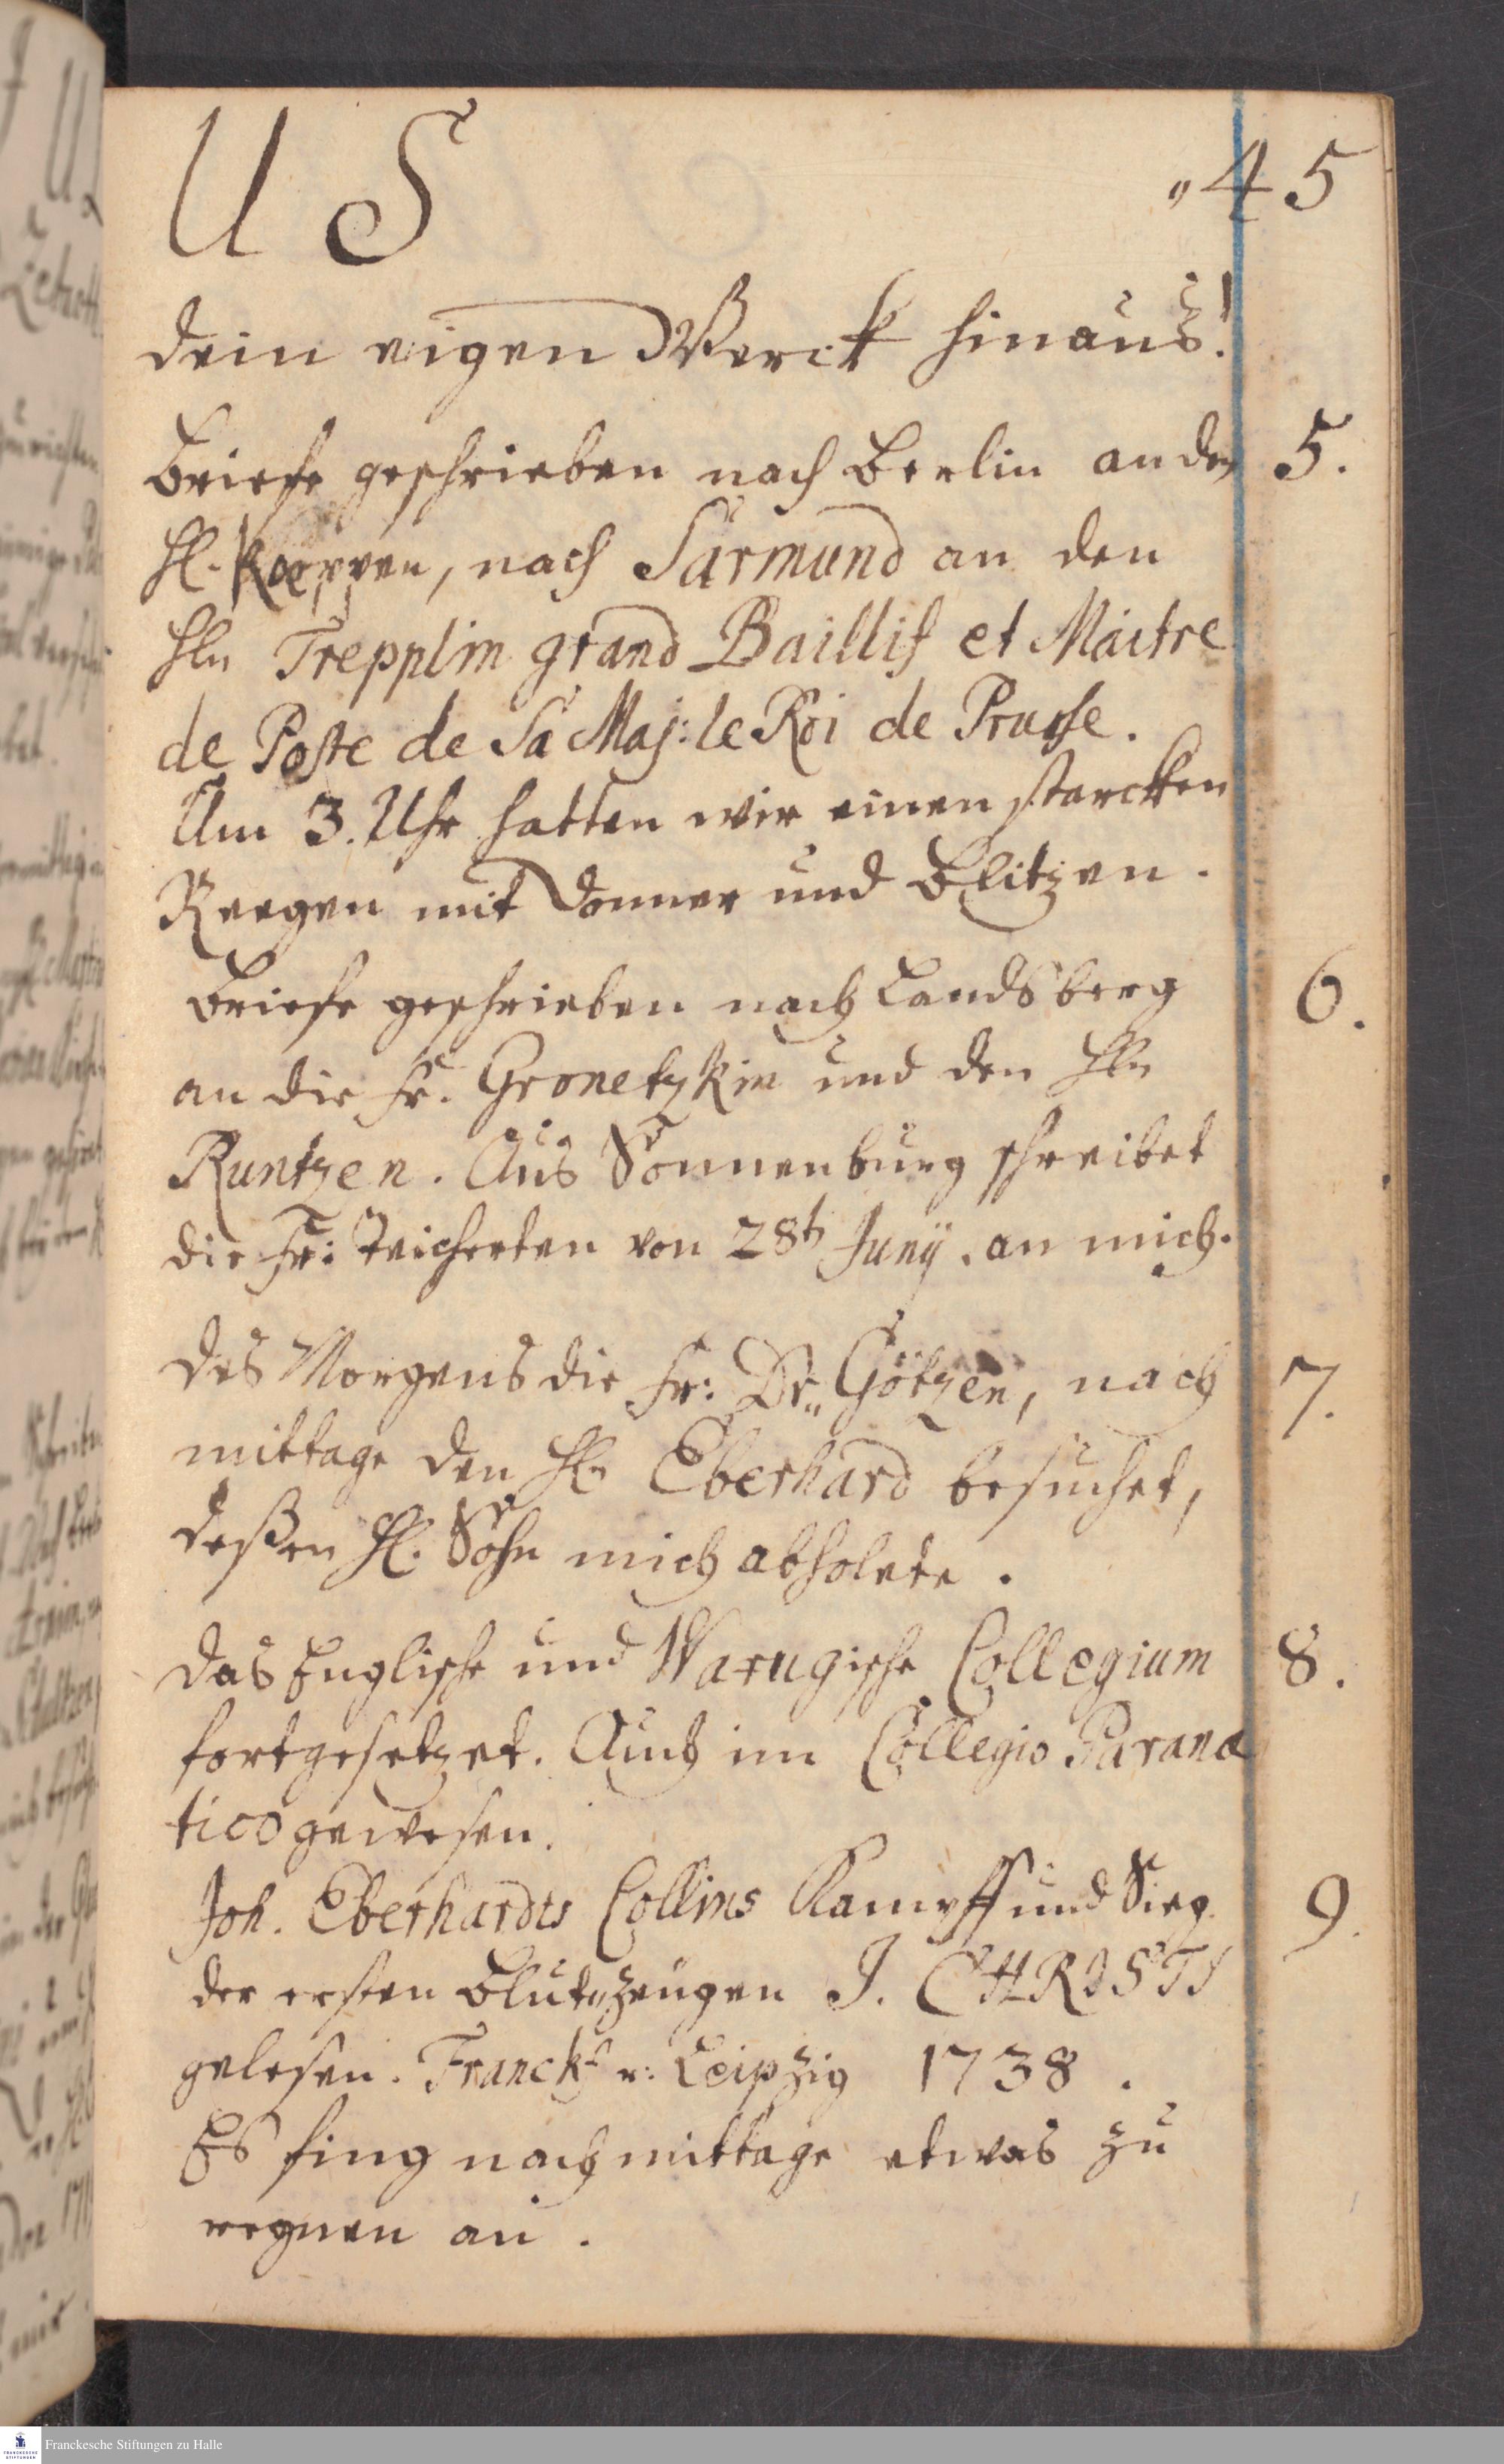 U S „45
dein eigen Werck hinaus!
Briefe geschrieben nach Berlin an den 5.
H. Koeppen, nach Sarmund an den
Hln Trepplin grand Baillif et Maitre
de Poste de Sa Maj: le Roi de Prusse.
Um 3. Uhr hatten wir einen starcken
Reegen mit Donner und Blitzen.
Briefe geschrieben nach Landsberg 6.
an die Fr. Gronetzkin und den Hln
Runtzen. Aus Sonnenburg schreibet
die Fr: Teicherten von 28t Junÿ. an mich.
Des Morgens die Fr: Dr„ Götzen, nach 7.
mittage den Hln Eberhard besuchet,
deßen H. Sohn mich abholete.
Das Englische und Warugische Collegium 8.
fortgesetzet. Auch im Collegio Paræne
tico gewesen.
Joh. Eberhardts Collins Kampff und Sieg 9.
der ersten Blut„zeugen J. CHRISTI
gelesen. Franckf u: Leipzig 1738.
Es fing nachmittage etwas zu
regnen an.
Franckesche Stiftungen zu Halle